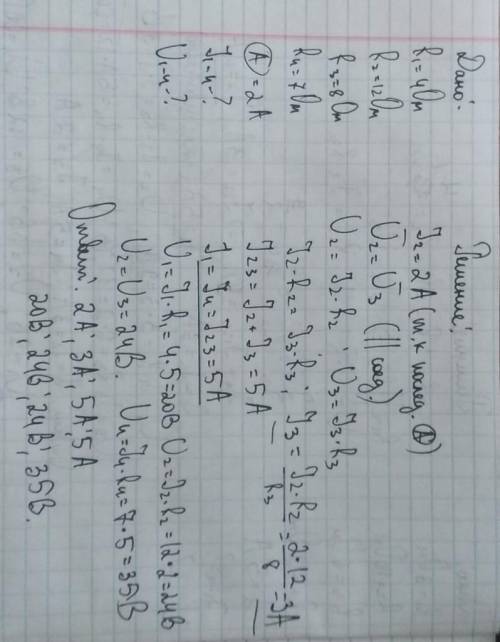 Дано:
R₁=4Ом
R₂=12Ом
R₃=8Ом
R₄=7Ом
Ⓐ=2А
J₁₋₄-?
U₁₋₄-?
Решение:
J₂=2А (т.к послед. Ⓐ)
U₂=U₃ (|| соед.)
U₂=J₂·R₂, U₃=J₃·R₃
J₂·R₂=J₃·R₃; J₃=J₂·R₂/R₃=2·12/8=3А
J₂₃=J₂+J₃=5А
J₁=J₄=J₂₃=5А
U₁=J₁·R₁=4·5=20В U₂=J₂·R₂=12·2=24В
U₂=U₃=24В. U₄=J₄·R₄=7·5=35В
Ответ: 2А; 3А; 5А; 5А
20В; 24В; 24В; 35В.